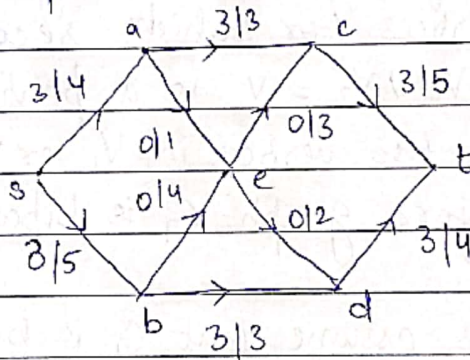 3/3
a c
3/4 3/5
0/1 0/3
s e t
0/4 0/2
3/5 3/4
b d
3/3